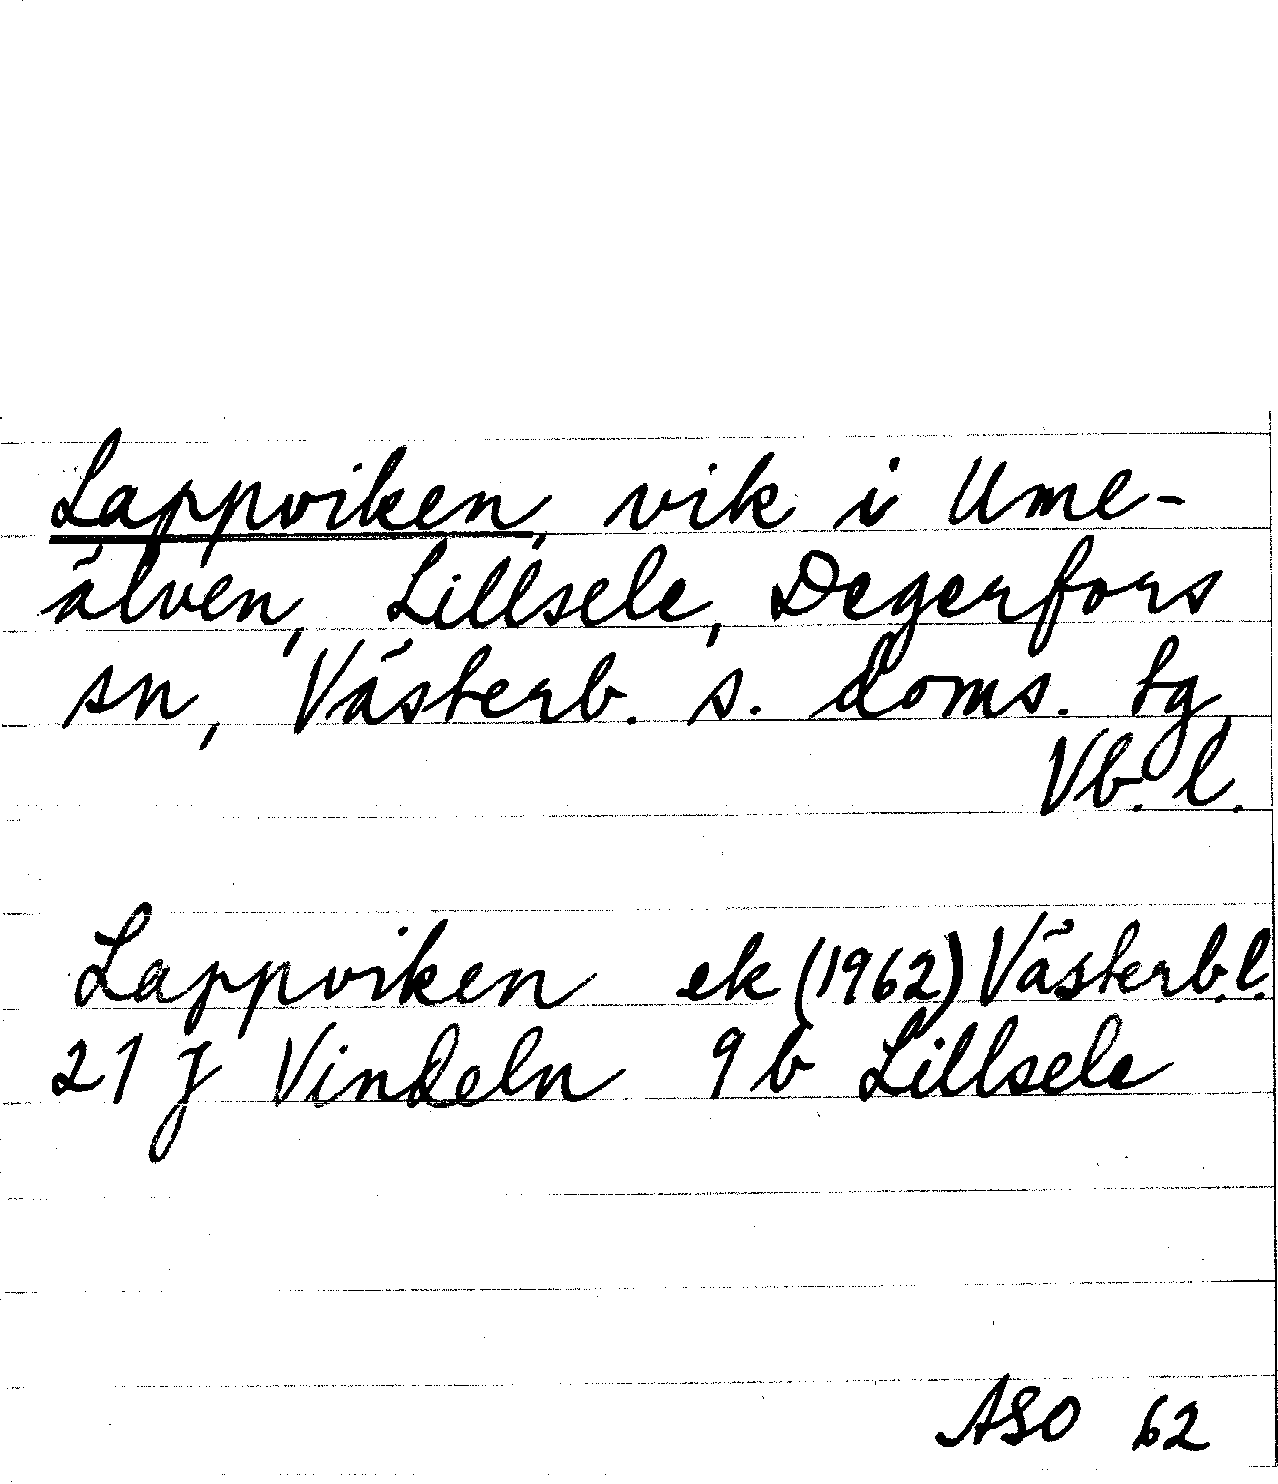 Lappviken, vik i Ume-
älven, Lillsele, Degerfors
sn, Västerb. s. doms. tg,
Vb. l.
Lappviken ek (1962) Västerb.l.
21 J Vindeln 9 b Lillsele
ASO 62